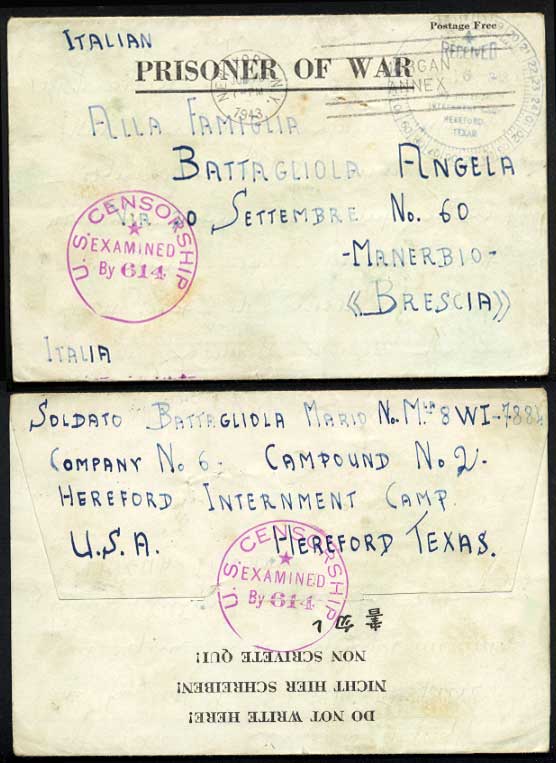 Postage Free
ITALIAN
PRISONER OF WAR
NEW YORK, N.Y.
1943
MORGAN
ANNEX
RECEIVED
HEREFORD
TEXAS
ALLA FAMIGLIA
BATTAGLIOLA ANGELA
VIA 20 SETTEMBRE No. 60
-MANERBIO-
《BRESCIA》
ITALIA
U.S. CENSORSHIP
EXAMINED
By 614
SOLDATO BATTAGLIOLA MARIO No. 8WI-7884
COMPANY No 6. CAMPOUND No 2.
HEREFORD INTERNMENT CAMP
U.S.A. HEREFORD TEXAS.
U.S. CENSORSHIP
EXAMINED
By 614
DO NOT WRITE HERE!
NICHT HIER SCHREIBEN!
NON SCRIVETE QUI!